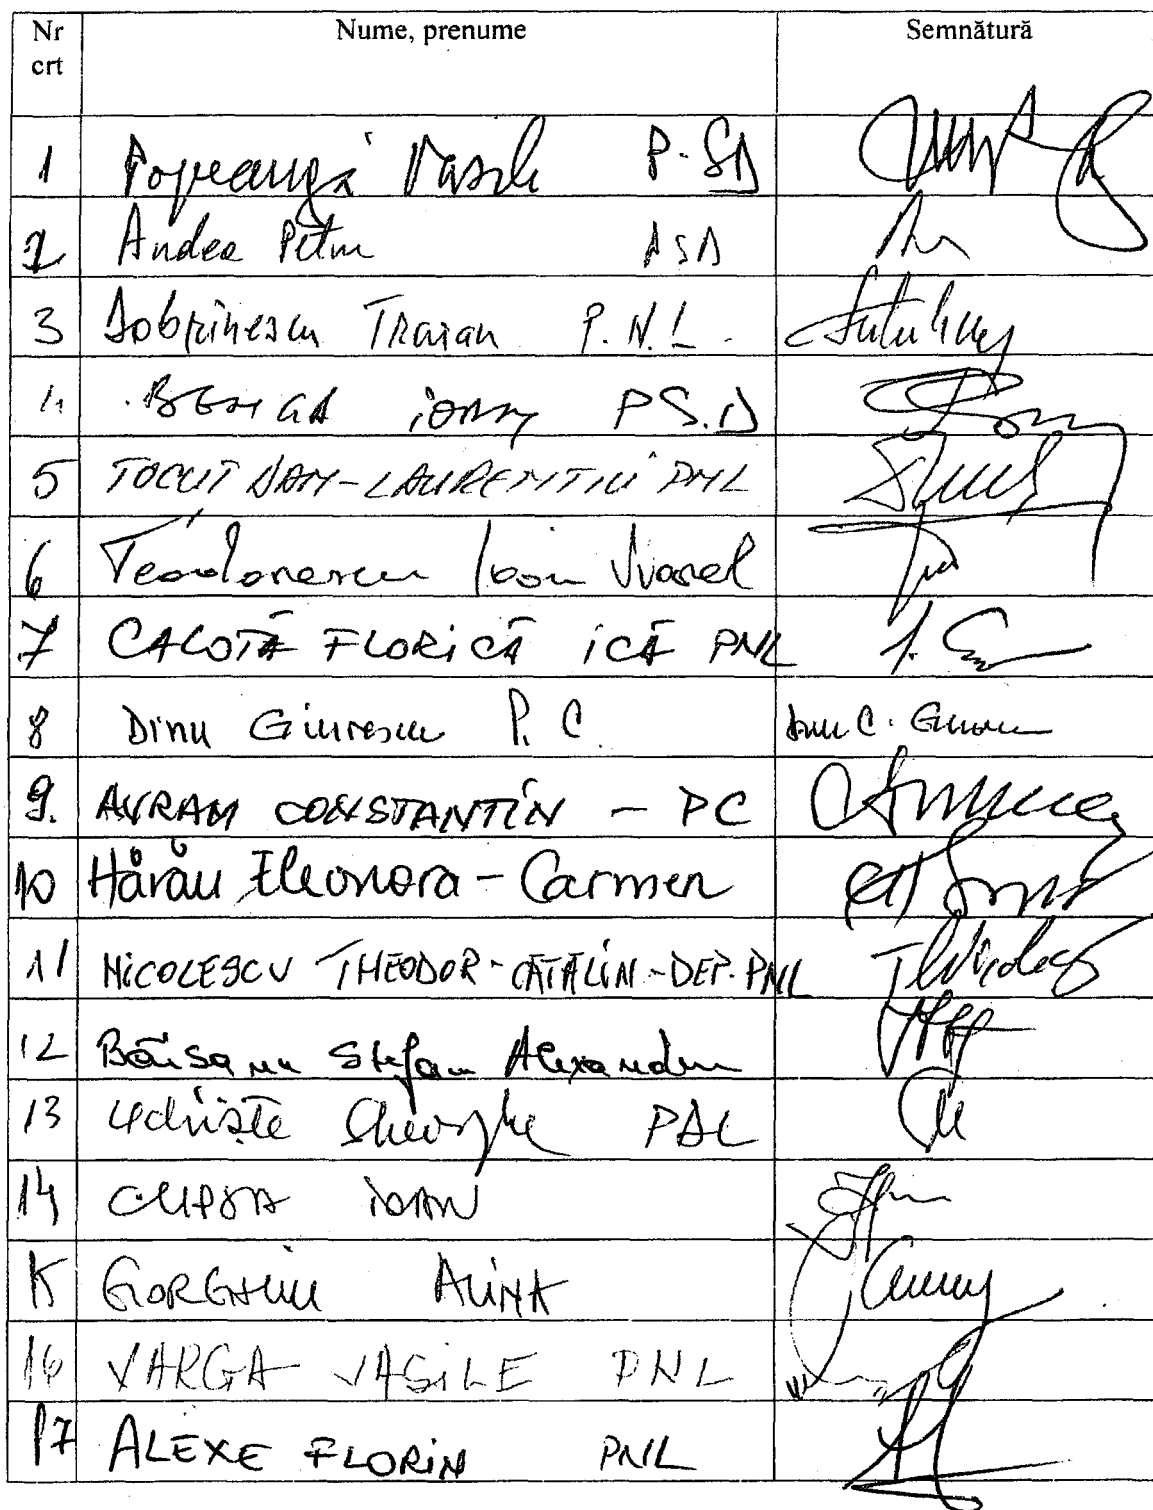 Nr crt Nume, prenume Semnătură
1 Popeangă Vasile P.SD
2 Andea Petru PSD
3 Dobrinescu Traian P.N.L.
4 BENGA IOAN PS.D
5 TOCUT DAN-LAURENTIU PNL
6 Teodorescu Ioan Vivorel
7 CALOTĂ FLORICĂ ICĂ PNL
8 Dinu Giurescu P.C.
9. AVRAM CONSTANTIN - PC
10 Hărău Eleonora-Carmen
11 NICOLESCU THEODOR-CĂTĂLIN-DEP.PNL
12 Băisanu Stefan Alexandru
13 Udriște Gheorghe
14 IOAN
15 GORGHIU ALINA
16 VARGA VASILE PNL
17 ALEXE FLORIN PNL